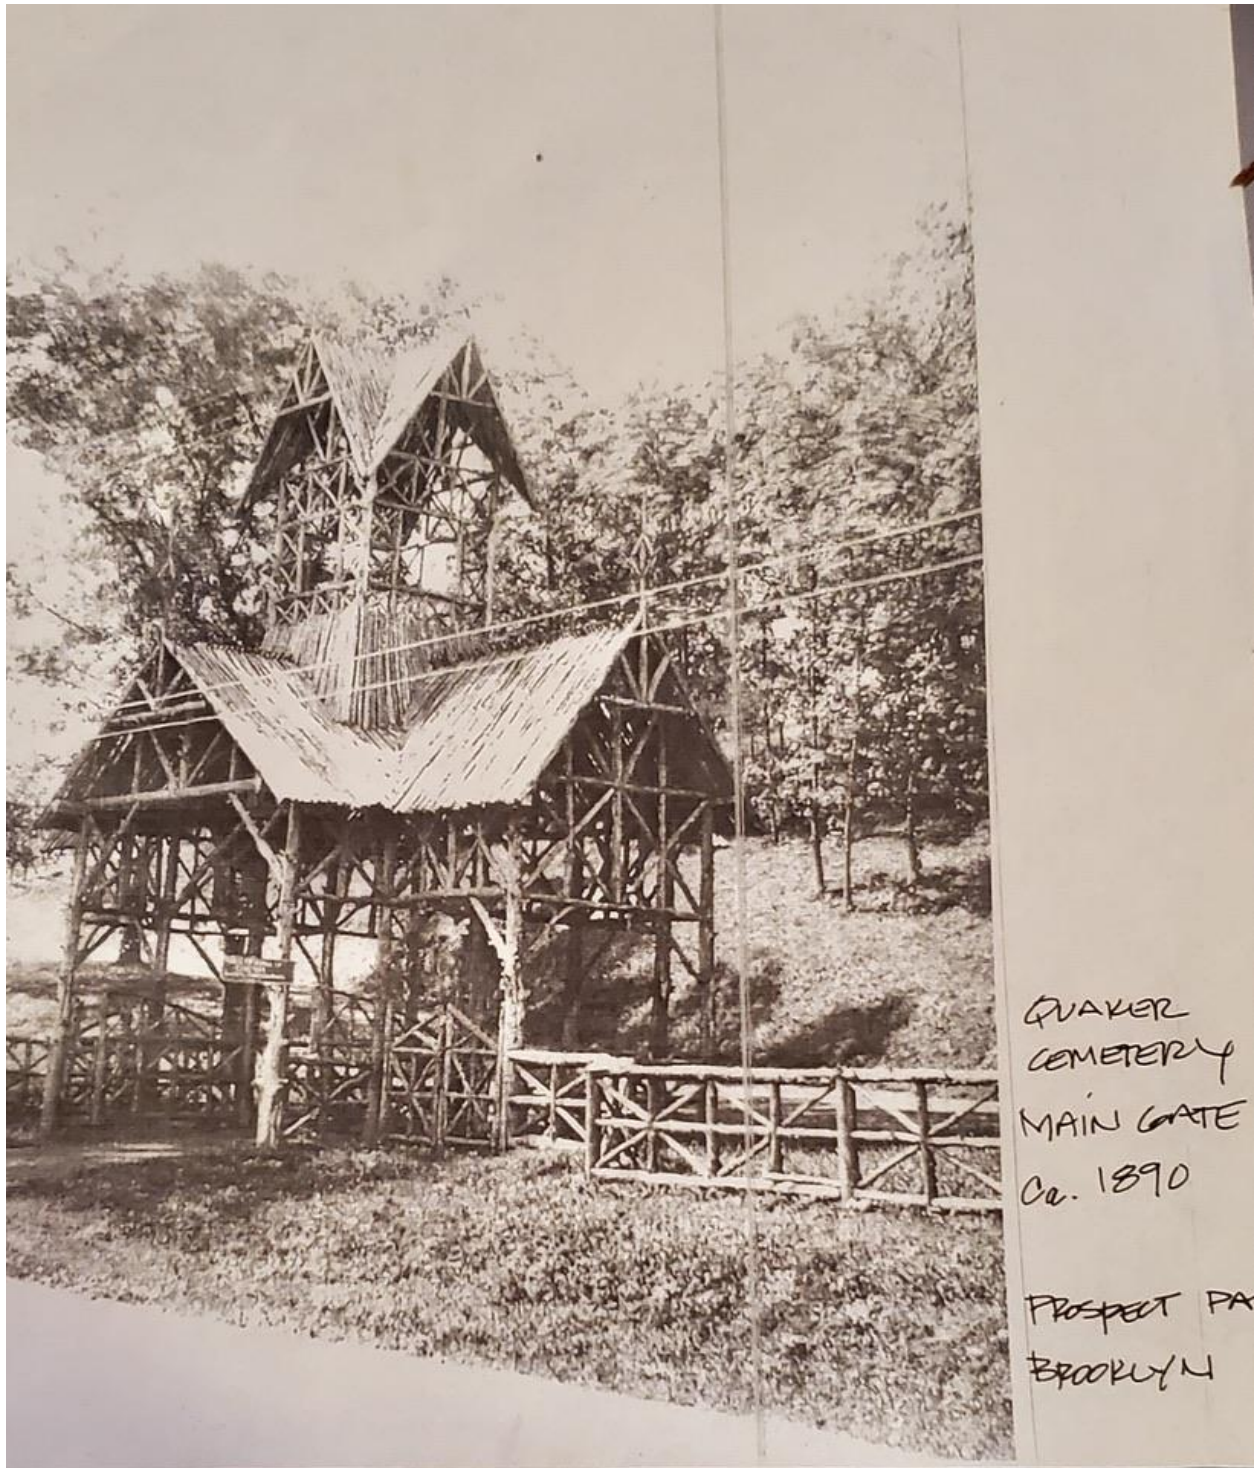 QUAKER
CEMETERY
MAIN GATE
Ca. 1890
PROSPECT PA
BROOKLYN